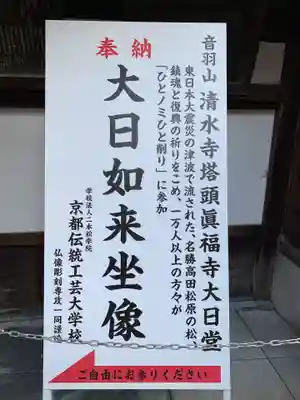 音羽山 清水寺塔頭眞福寺大日堂
東日本大震災の津波で流された、名勝高田松原の松、
鎮魂と復興の祈りをこめ、一万人以上の方々が
「ひとノミひと削り」に参加
奉納
大日如来坐像
学校法人二本松学院
京都伝統工芸大学校
仏像彫刻専攻一同謹
ご自由にお参りください